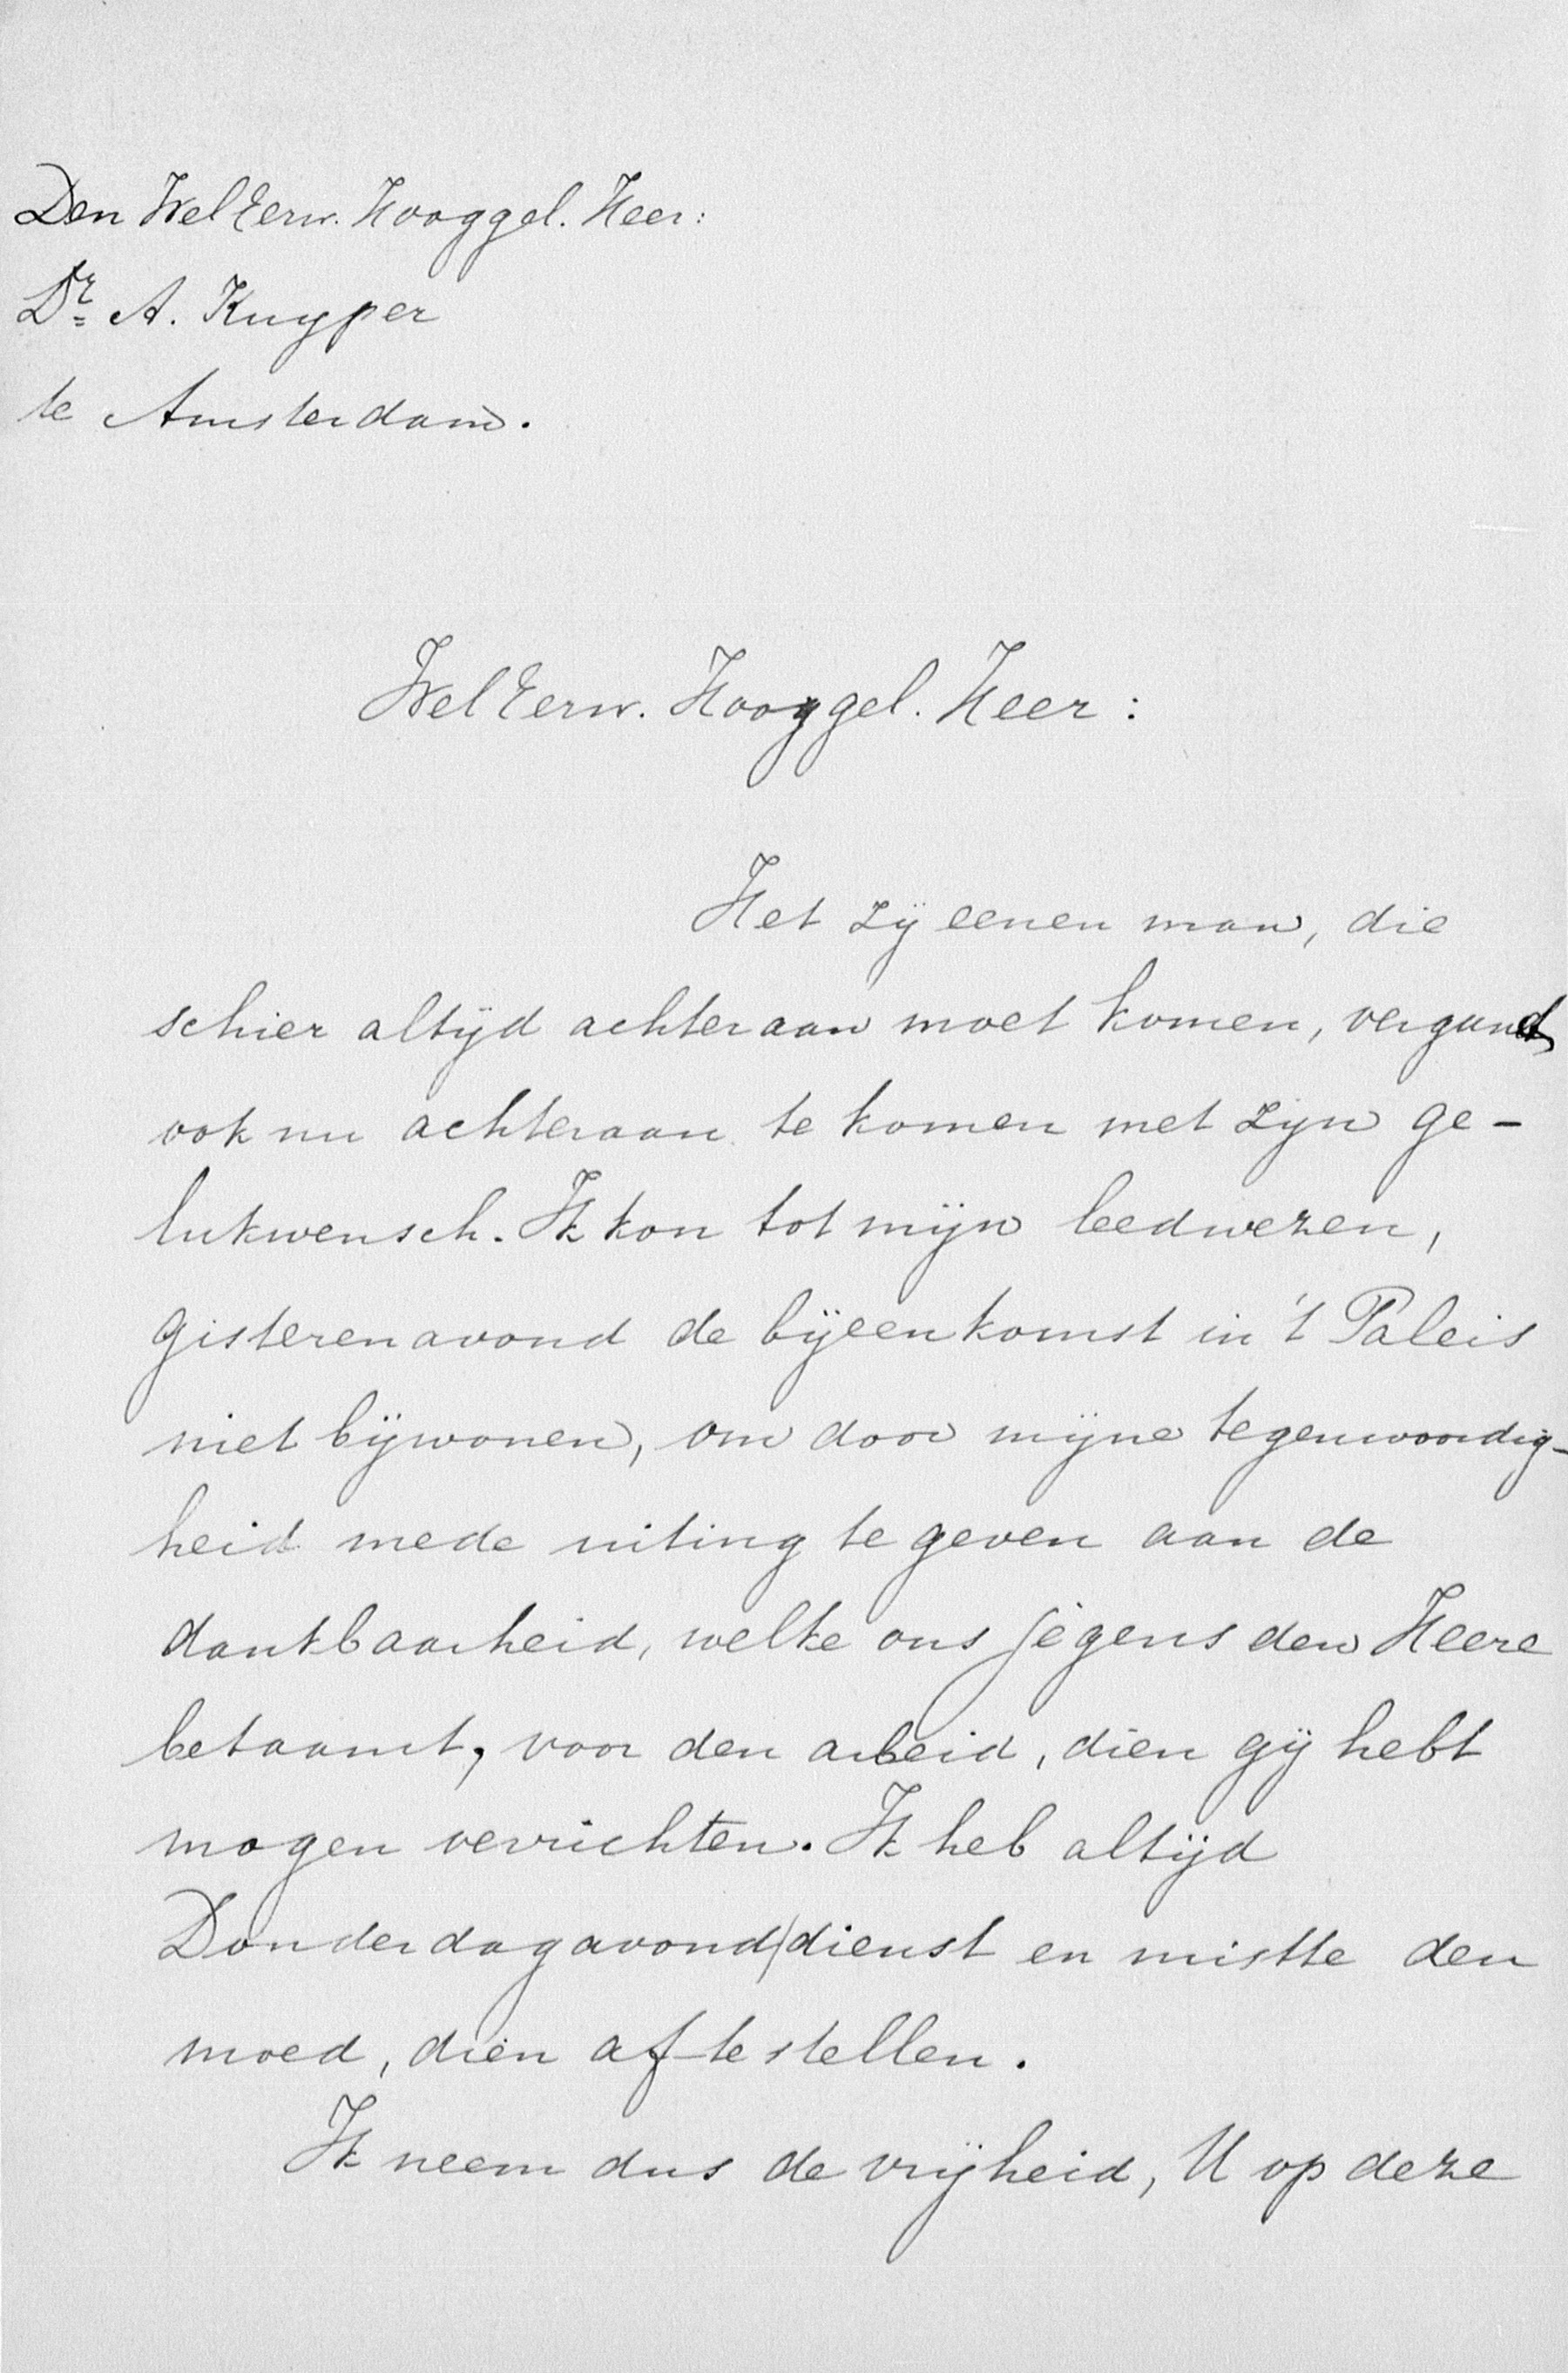 Den WelEerw. Hooggel. Heer:
Dr. A. Kuyper
te Amsterdam.
WelEerw. Hooggel. Heer:
Het zij eenen man, die
schier altijd achteraan moet komen, vergund
ook nu achteraan te komen met zijn ge-
lukwensch. Ik kon tot mijn leedwezen,
gisterenavond de bijeenkomst in 't Paleis
niet bijwonen, om door mijne tegenwoordig-
heid mede uiting te geven aan de
dankbaarheid, welke ons jegens den Heere
betaamt, voor den arbeid, dien gij hebt
mogen verrichten. Ik heb altijd
Donderdagavond/dienst en mistte den
moed, dien af te stellen.
Ik neem dus de vrijheid, U op deze